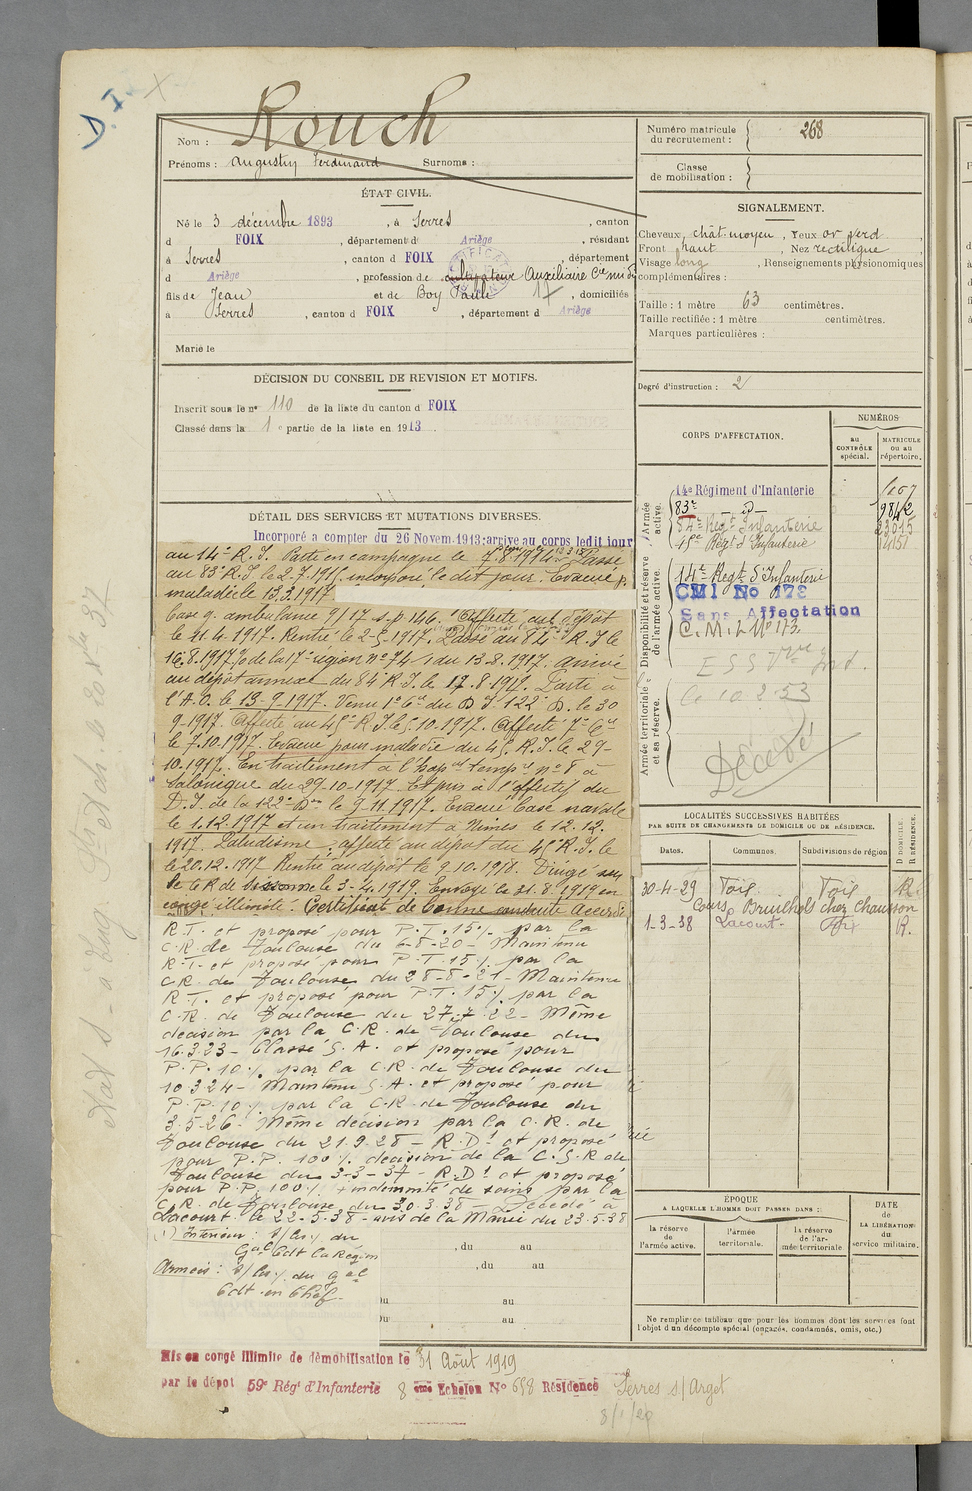 D.I.
Rouch
Nom :
Prénoms : Augustin Ferdinand Surnoms :
ÉTAT CIVIL.
Né le 3 décembre 1893, à Serres, canton
d FOIX, département d Ariège, résidant
à Serres, canton d FOIX, département
d Ariège, profession de cultivateur Auxiliaire
fils de Jean et de Boy Paule 17, domiciliés
à Serres, canton d FOIX, département d Ariège
Marié le
DÉCISION DU CONSEIL DE REVISION ET MOTIFS.
Inscrit sous le n° 110 de la liste du canton d FOIX
Classé dans la 1e partie de la liste en 1913.
DÉTAIL DES SERVICES ET MUTATIONS DIVERSES.
Incorporé a compter du 26 Novem. 1913; arrive au corps ledit jour
au 14e R.I. Parti en campagne le 7.8.1914. Passé
au 83e R.I. le 2.7.1915. incorporé le dit jour. Evacué p.
maladie le 13.3.1917
base q. ambulance 9/17 s.p. 146. Affecté au dépôt
le 21.4.1917. Rentré le 2-5-1917. Passé au 84e R.I. le
16.8.1917 % de la 17e région n° 74 du 13.8.1917. arrivé
au dépôt annexe du 84e R.I. le 17.8.1917. Parti à
l'A.O. le 13-9-1917. Venu 1e Cie du D.I. 122e D. le 30
9-1917. Affecté au 45e R.I. le 5.10.1917. Affecté 7e Cie
le 7.10.1917. Evacué pour maladie du 45 R.I. le 29-
10.1917. En traitement à l'hop. temp. n° 8 à
Salonique du 29-10-1917. Et mis à l'effectif du
D.I. de la 122e Don le 9.11.1917. Evacué base navale
le 1.12.1917 et en traitement à Nîmes le 12.12.
1917. Paludisme ; affecté au dépôt du 45e R.I. le
le 20.12.1917. Rentré au dépôt le 9.10.1918. Dirigé sur
le C R de Sissonne le 3-4.1919. Envoyé le 31.8.1919 en
congé illimité. Certificat de bonne conduite Accordé
R.T. et proposé pour P.T. 15% par la
C.R. de Toulouse du 6-8-20 - Maintenu
R.T. et proposé pour P.T. 15% par la
C.R. de Toulouse du 28-8-21 - Maintenu
R.T. et proposé pour P.T. 15% par la
C.R. de Toulouse du 27.7.22 - Même
décision par la C.R. de Toulouse du
16.3.23 - Classé S.A. et proposé pour
P.P. 10% par la C.R. de Toulouse du
10 3 24 - Maintenu S.A. et proposé pour
P.P. 10% par la C.R. de Toulouse du
3-5-26 - Même décision par la C.R. de
Toulouse du 21.9.28 - R.D! et proposé
pour P.P. 100% décision de la C.S.R de
Toulouse du 3-3-37 - R.D! et proposé
pour P.P. 100% + indemnité de soins par la
C.R. de Toulouse du 30.3.38 - Décédé à
Lacourt le 22-5-38 - avis de la Mairie du 23.5.38
(1) Intérieur : du
Gal Cdt la Région
Armées : du Gal
Cdt en Chef
, du au
, du au
du au
du au
Mis en congé illimité de démobilisation le 31 Août 1919
par le dépôt 59e Régt d'Infanterie 8 ème Echelon N° 698 Résidence Serres s/Arget
Numéro matricule du recrutement : 268
Classe de mobilisation :
SIGNALEMENT.
Cheveux, chât. moyen, Yeux or. verd.
Front haut, Nez rectiligne
Visage long, Renseignements physionomiques
complémentaires :
Taille : 1 mètre 63 centimètres.
Taille rectifiée : 1 mètre centimètres.
Marques particulières :
Degré d'instruction : 2
CORPS D'AFFECTATION.
NUMÉROS
au CONTRÔLE spécial.
MATRICULE ou au répertoire.
Armée active.
14e Régiment d'Infanterie
83e - id - 9842
84e Régt Infanterie
45e Régt d'Infanterie
Disponibilité et réserve de l'armée active.
14e Régt d'Infanterie
CMI No 173
Sans Affectation
C.M.I. N° 173.
Armée territoriale et sa réserve.
Le 10 2 53
Décédé
LOCALITÉS SUCCESSIVES HABITÉES
PAR SUITE DE CHANGEMENTS DE DOMICILE OU DE RÉSIDENCE.
Dates. Communes. Subdivisions de région D DOMICILE. R RÉSIDENCE.
30-4-29 Foix Foix R.
Cours Bruilhols chez Chausson
1-3-38 Lacourt. Foix R.
ÉPOQUE
A LAQUELLE L'HOMME DOIT PASSER DANS :
la réserve de l'armée active.
l'armée territoriale.
la réserve de l'armée territoriale
DATE de LA LIBÉRATION du service militaire.
Ne remplir ce tableau que pour les hommes dont les services font
l'objet d'un décompte spécial (engagés, condamnés, omis, etc.)